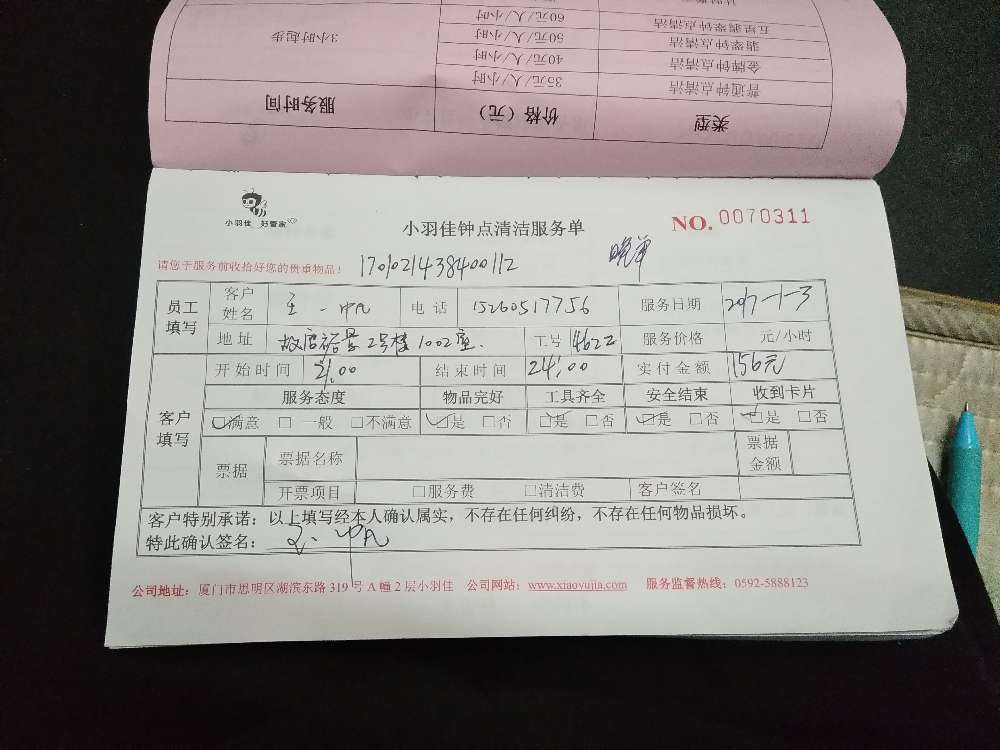 类型 价格（元） 服务时间
普通钟点清洁 35元/人/小时 3小时起步
金牌钟点清洁 40元/人/小时
翡翠钟点清洁 50元/人/小时
五星翡翠钟点清洁 60元/人/小时
小羽佳 好管家
小羽佳钟点清洁服务单
NO. 0070311
请您于服务前收拾好您的贵重物品！ 1701021438400112 晚单
员工填写 客户姓名 电话 15260517756 服务日期 2017-1-3
地址 2号楼1002座. 工号 4622 服务价格 元/小时
客户填写 开始时间 21,00 结束时间 24,00 实付金额 156元
服务态度 物品完好 工具齐全 安全结束 收到卡片
☑满意 □一般 □不满意 ☑是 □否 ☑是 □否 ☑是 □否 ☑是 □否
票据 票据名称 票据金额
开票项目 □服务费 □清洁费 客户签名
客户特别承诺：以上填写经本人确认属实，不存在任何纠纷，不存在任何物品损坏。
特此确认签名：
公司地址：厦门市思明区湖滨东路319号A幢2层小羽佳 公司网站：www.xiaoyujia.com 服务监督热线：0592-5888123